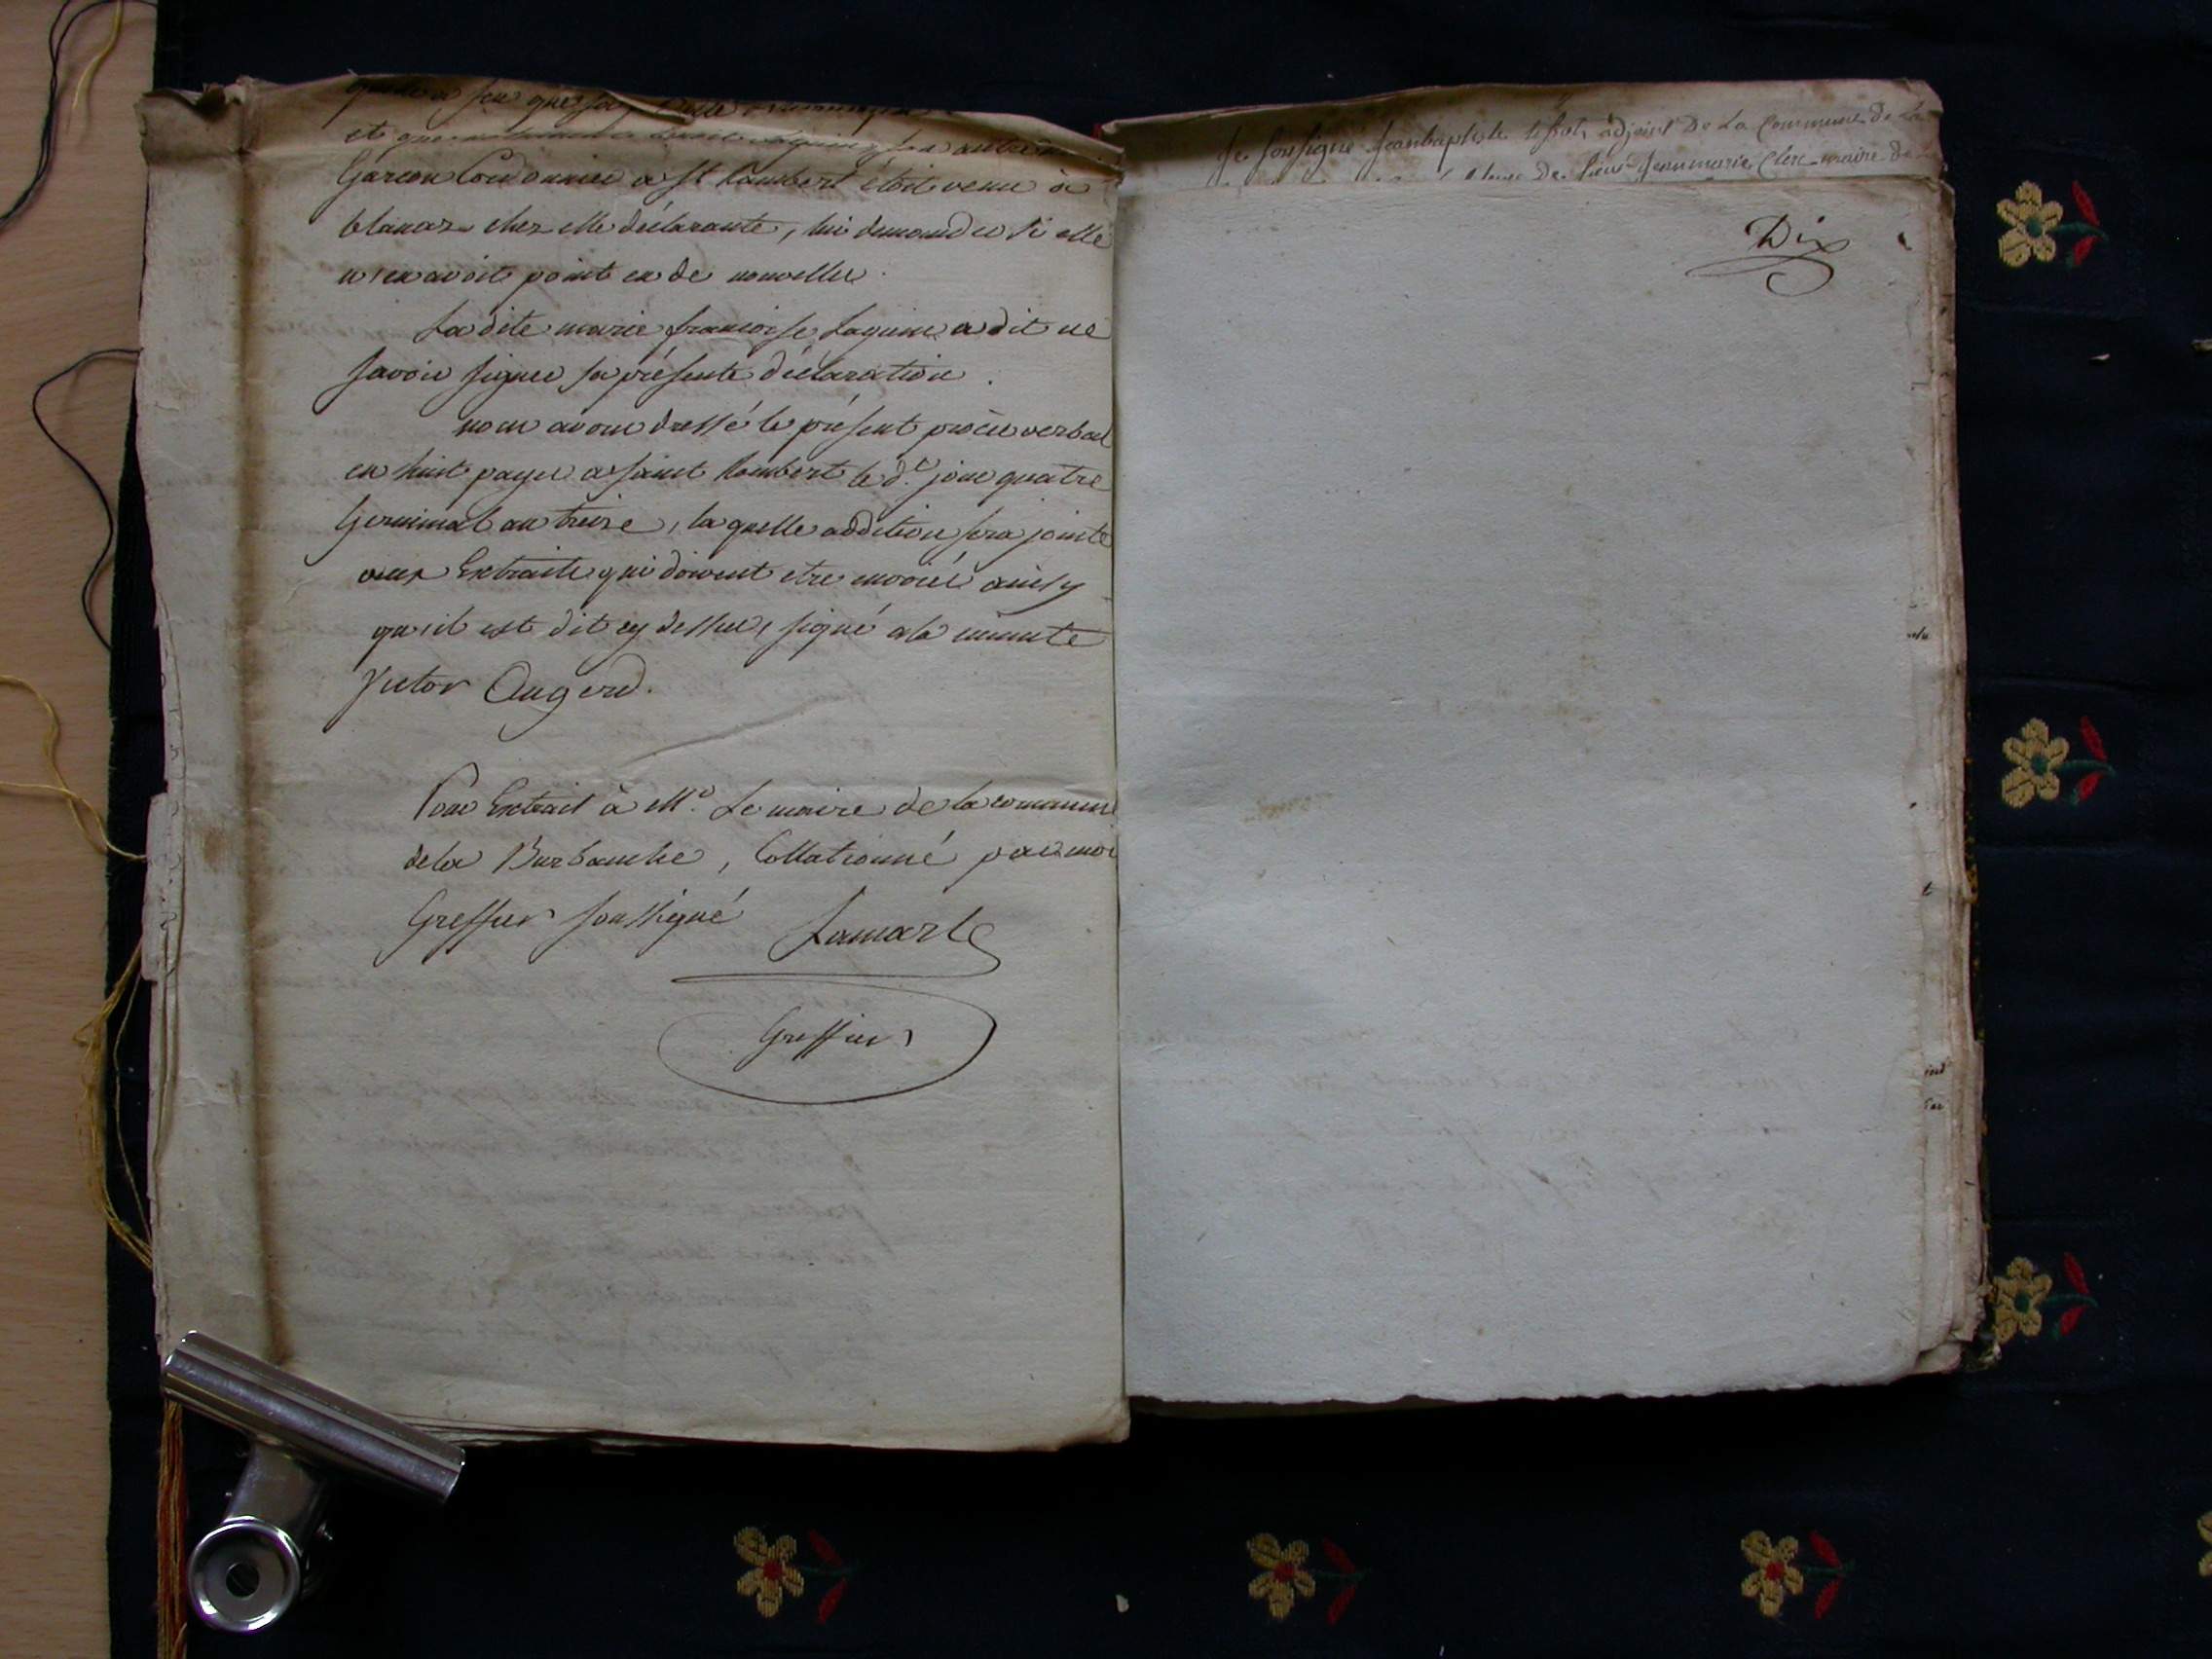 et que
Garcon Cordonnier a St Rambert étoit venu à
blanaz chez elle déclarante, lui demander si elle
n'en avoit point eu de nouvelles.
La dite marie francoise Laguin a dit ne
savoir signer sa présente déclaration.
nous avons dressé le présent procès verbal
en huit pages a saint Rambert le dt. jour quatre
Germinal an treize, la quelle addition sera jointe
aux Extraits qui doivent etre envoiés ainsy
qu'il est dit cy dessus, signé a la minute
Victor Augerd.
Pour Extrait à Mr. Le maire de la commune
dela Burbanche, Collationné par moi
Greffier soussigné Jamarle
Greffier
Je sousigné Jeanbaptiste adjoint De La Commune de La
De sieur Jeanmarie Clerc maire de
Dix